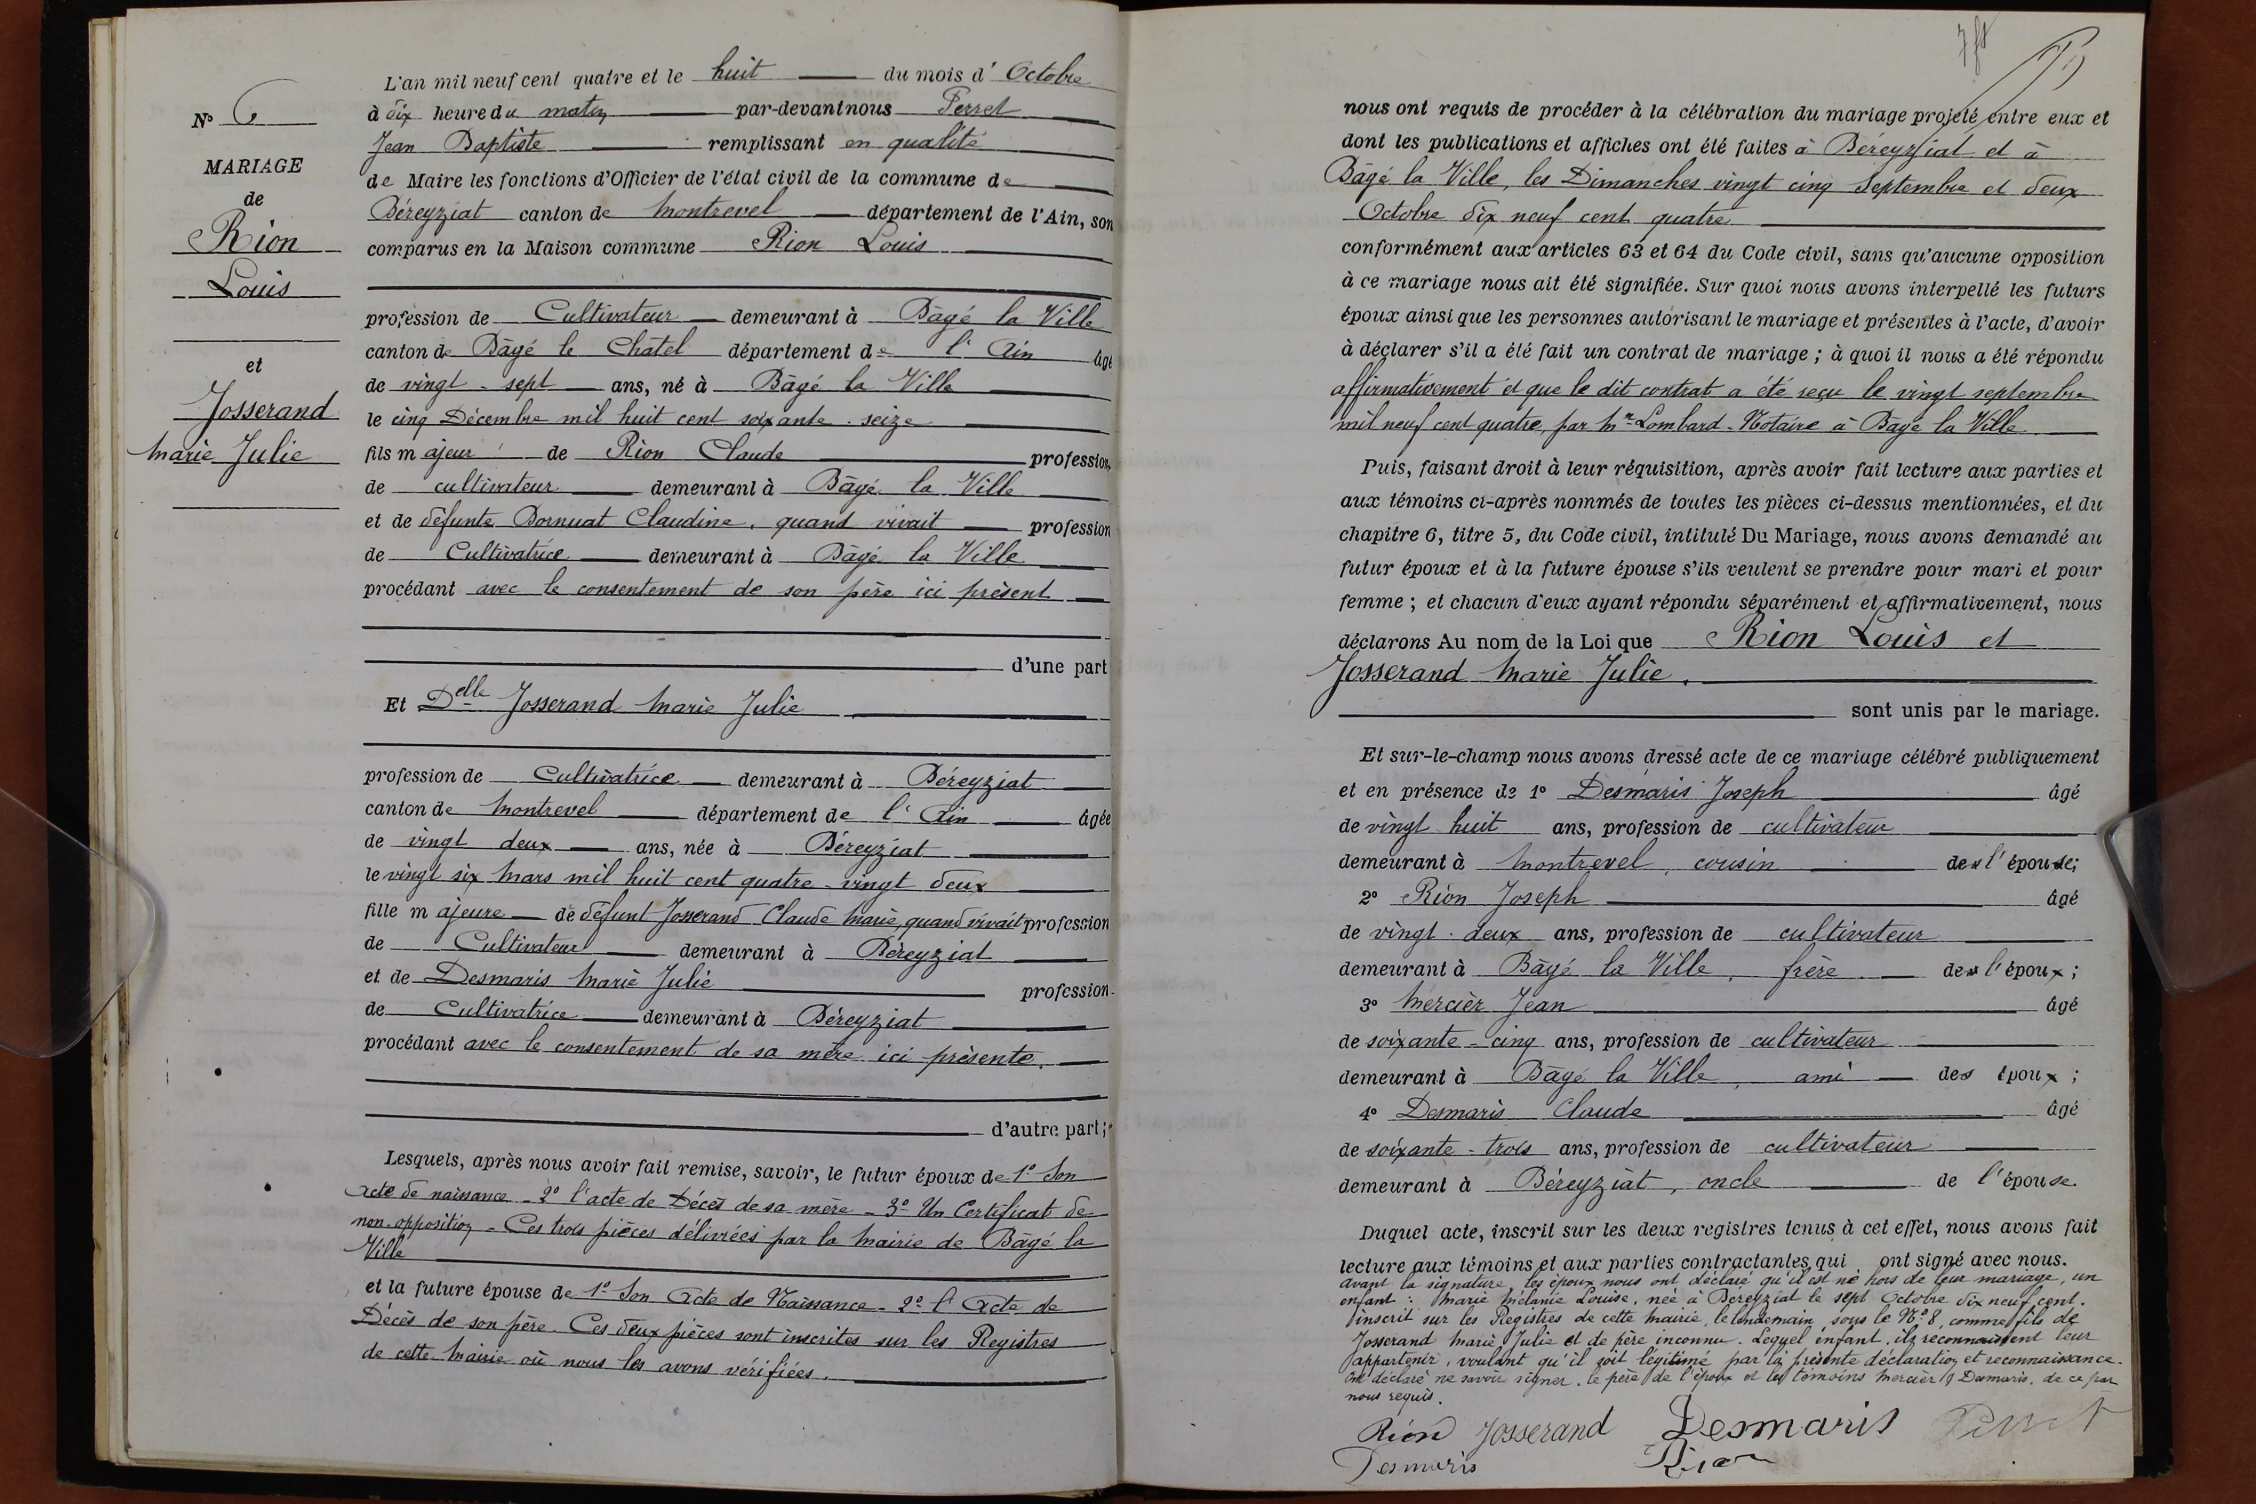 N° 6
MARIAGE
de
Rion
Louis
et
Josserand
Marie Julie
L'an mil neuf cent quatre et le huit du mois d' Octobre
à dix heure du matin par-devant nous Perret
Jean Baptiste remplissant en qualité
de Maire les fonctions d'Officier de l'état civil de la commune de
Béreyziat canton de Montrevel département de l'Ain, son
comparus en la Maison commune Rion Louis
profession de Cultivateur demeurant à Bâgé la Ville
canton de Bâgé le Châtel département de l'Ain âgé
de vingt-sept ans, né à Bâgé la Ville
le cinq Décembre mil huit cent soixante-seize
fils majeur de Rion Claude profession
de cultivateur demeurant à Bâgé la Ville
et de défunte Dornuat Claudine, quand vivait profession
de Cultivatrice demeurant à Bâgé la Ville
procédant avec le consentement de son père ici présent
d'une part
Et Delle Josserand Marie Julie
profession de Cultivatrice demeurant à Béreyziat
canton de Montrevel département de l'Ain âgée
de vingt deux ans, née à Béreyziat
le vingt six Mars mil huit cent quatre-vingt deux
fille majeure de défunt Josserand Claude Marie, quand vivait profession
de Cultivateur demeurant à Béreyziat
et de Desmaris Marie Julie profession
de Cultivatrice demeurant à Béreyziat
procédant avec le consentement de sa mère ici présente.
d'autre part ;
Lesquels, après nous avoir fait remise, savoir, le futur époux de 1° Son
acte de naissance - 2° l'acte de Décès de sa mère - 3° Un Certificat de
non-opposition - Ces trois pièces délivrées par la Mairie de Bâgé la
Ville
et la future épouse de 1° Son Acte de Naissance - 2° l'Acte de
Décès de son père. Ces deux pièces sont inscrites sur les Registres
de cette Mairie où nous les avons vérifiées.
nous ont requis de procéder à la célébration du mariage projeté entre eux et
dont les publications et affiches ont été faites à Béreyziat et à
Bâgé la Ville, les Dimanches vingt cinq Septembre et deux
Octobre dix neuf cent quatre
conformément aux articles 63 et 64 du Code civil, sans qu'aucune opposition
à ce mariage nous ait été signifiée. Sur quoi nous avons interpellé les futurs
époux ainsi que les personnes autorisant le mariage et présentes à l'acte, d'avoir
à déclarer s'il a été fait un contrat de mariage ; à quoi il nous a été répondu
affirmativement et que le dit contrat a été reçu le vingt septembre
mil neuf cent quatre, par Mre Lombard-Notaire à Bâgé la Ville
Puis, faisant droit à leur réquisition, après avoir fait lecture aux parties et
aux témoins ci-après nommés de toutes les pièces ci-dessus mentionnées, et du
chapitre 6, titre 5, du Code civil, intitulé Du Mariage, nous avons demandé au
futur époux et à la future épouse s'ils veulent se prendre pour mari et pour
femme ; et chacun d'eux ayant répondu séparément et affirmativement, nous
déclarons Au nom de la Loi que Rion Louis et
Josserand Marie Julie,
sont unis par le mariage.
Et sur-le-champ nous avons dressé acte de ce mariage célébré publiquement
et en présence de 1° Desmaris Joseph âgé
de vingt huit ans, profession de cultivateur
demeurant à Montrevel, cousin de l'épouse;
2° Rion Joseph âgé
de vingt-deux ans, profession de cultivateur
demeurant à Bâgé la Ville, frère de l'époux ;
3° Mercier Jean âgé
de soixante-cinq ans, profession de cultivateur
demeurant à Bâgé la Ville, ami des époux ;
4° Desmaris Claude âgé
de soixante-trois ans, profession de cultivateur
demeurant à Béreyziat, oncle de l'épouse.
Duquel acte, inscrit sur les deux registres tenus à cet effet, nous avons fait
lecture aux témoins et aux parties contractantes qui ont signé avec nous.
Avant la signature, les époux nous ont déclaré qu'il est né hors de leur mariage, un
enfant : Marie Mélanie Louise, née à Béreyziat le sept Octobre dix neuf cent.
inscrit sur les Registres de cette mairie, le lendemain, sous le N° 8, comme fils de
Josserand Marie Julie et de père inconnu. Lequel enfant, ils reconnaissent leur
appartenir, voulant qu'il soit légitimé par la présente déclaration et reconnaissance.
Ont déclaré ne savoir signer, le père de l'époux et les témoins Mercier & Desmaris, de ce par
nous requis.
Rion Josserand Desmaris Perret
Desmaris Rion